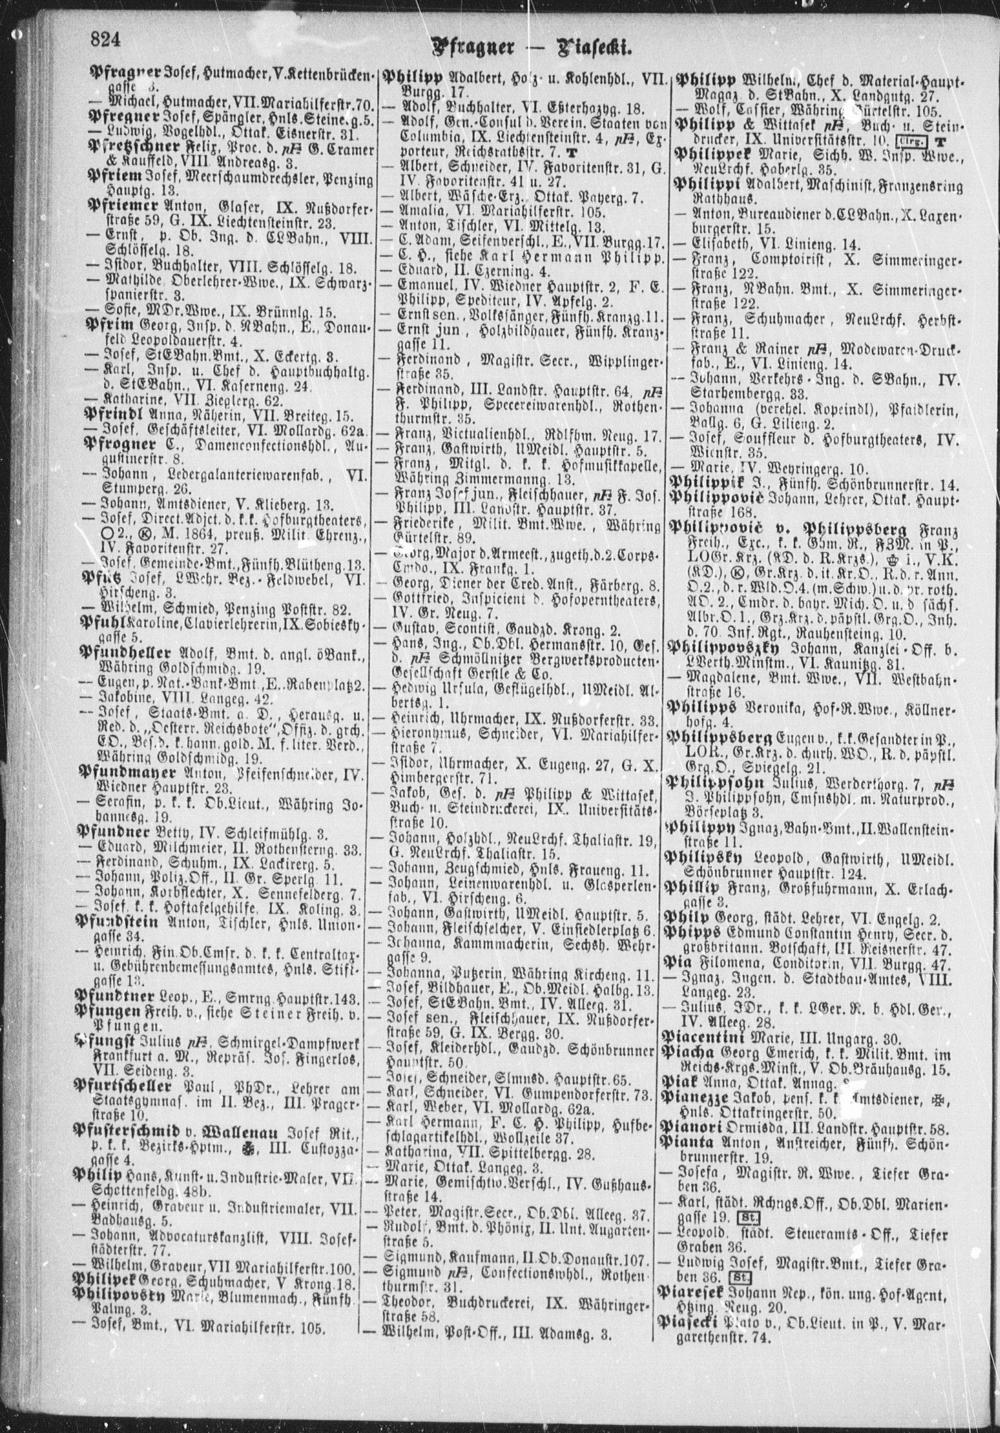 824
Pfragner — Piasecki.
Pfragner Josef, Hutmacher, V. Kettenbrücken-
gasse 3.
— Michael, Hutmacher, VII. Mariahilferstr. 70.
Pfregner Josef, Spängler, Hnls. Steineg. 5.
— Ludwig, Vogelhdl., Ottak. Eisnerstr. 31.
Pfretzschner Felix, Proc. d. G. Cramer
& Kauffeld, VIII. Andreasg. 3.
Pfriem Josef, Meerschaumdrechsler, Penzing
Hauptg. 13.
Pfriemer Anton, Glaser, IX. Nußdorfer-
straße 59, G. IX. Liechtensteinstr. 23.
— Ernst, p. Ob. Ing. d. CLBahn., VIII.
Schlösselg. 18.
— Isidor, Buchhalter, VIII. Schlösselg. 18.
— Mathilde, Oberlehrer-Wwe., IX. Schwarz-
spanierstr. 3.
— Sofie, MDr.Wwe., IX. Brünnlg. 15.
Pfrim Georg, Insp. d. NBahn., E., Donau-
feld Leopoldauerstr. 4.
— Josef, StEBahn.Bmt., X. Eckertg. 3.
— Karl, Insp. u. Chef d. Hauptbuchhaltg.
d. StEBahn., VI. Kaserneng. 24.
— Katharine, VII. Zieglerg. 62.
Pfrindl Anna, Näherin, VII. Breiteg. 15.
— Josef, Geschäftsleiter, VI. Mollardg. 62a.
Pfrogner C., Damenconfectionshdl., Au-
gustinerstr. 8.
— Johann, Ledergalanteriewarenfab., VI.
Stumperg. 26.
— Johann, Amtsdiener, V. Klieberg. 13.
— Josef, Direct. Adjct. d. k.k. Hofburgtheaters,
O2., Ⓚ, M. 1864, preuß. Milit. Ehrenz.,
IV. Favoritenstr. 27.
— Josef, Gemeinde-Bmt., Fünfh. Blütheng. 13.
Pfütz Josef, LWehr. Bez.-Feldwebel, VI.
Hirscheng. 3.
— Wilhelm, Schmied, Penzing Poststr. 82.
Pfuhl Karoline, Clavierlehrerin, IX. Sobiesky-
gasse 5.
Pfundheller Adolf, Bmt. d. angl. öBank.,
Währing Goldschmidg. 19.
— Eugen, p. Nat.-Bank-Bmt., E., Rabenplatz 2.
— Jakobine, VIII. Langeg. 42.
— Josef, Staats-Bmt. a. D., Herausg. u.
Red. d. „Oesterr. Reichsbote“, Offiz. d. grch.
EO., Bes. d. k. hann. gold. M. f. liter. Verd.,
Währing Goldschmidg. 19.
Pfundmayer Anton, Pfeifenschneider, IV.
Wiedner Hauptstr. 23.
— Serafin, p. k. k. Ob.Lieut., Währing Jo-
hannesg. 19.
Pfundner Betty, IV. Schleifmühlg. 3.
— Eduard, Milchmeier, II. Rothensterng. 33.
— Ferdinand, Schuhm., IX. Lackirerg. 5.
— Johann, Poliz.Off., II. Gr. Sperlg. 11.
— Johann, Korbflechter, X. Sennefelderg. 7.
— Josef, k. k. Hoftafelgehilfe, IX. Koling. 3.
Pfundstein Anton, Tischler, Hnls. Union-
gasse 34.
— Heinrich, Fin. Ob.Cmsr. d. k. k. Centraltax-
u. Gebührenbemessungsamtes, Hnls. Stift-
gasse 13.
Pfundtner Leop., E., Smrng. Hauptstr. 143.
Pfungen Freih. v., siehe Steiner Freih. v.
Pfungen.
Pfungst Julius, Schmirgel-Dampfwerk
Frankfurt a. M., Repräs. Jos. Fingerlos,
VII. Seideng. 3.
Pfurtscheller Paul, PhDr., Lehrer am
Staatsgymnas. im II. Bez., III. Prager-
straße 10.
Pfusterschmid v. Wallenau Josef Rit.,
p. k. k. Bezirks-Hptm., III. Custozza-
gasse 4.
Philip Hans, Kunst- u. Industrie-Maler, VII.
Schottenfeldg. 48b.
— Heinrich, Graveur u. Industriemaler, VII.
Badhausg. 5.
— Johann, Advocaturskanzlist, VIII. Josef-
städterstr. 77.
— Wilhelm, Graveur, VII Mariahilferstr. 100.
Philipek Georg, Schuhmacher, V Krong. 18.
Philipovsty Marie, Blumenmach., Fünfh.
Palmg. 3.
— Josef, Bmt., VI. Mariahilferstr. 105.
Philipp Adalbert, Holz- u. Kohlenhdl., VII.
Burgg. 17.
— Adolf, Buchhalter, VI. Eßterhazyg. 18.
— Adolf, Gen.-Consul d. Verein. Staaten von
Columbia, IX. Liechtensteinstr. 4, Ex-
porteur, Reichsrathsstr. 7. T
— Albert, Schneider, IV. Favoritenstr. 31, G.
IV. Favoritenstr. 41 u. 27.
— Albert, Wäsche-Erz., Ottak. Payerg. 7.
— Amalia, VI. Mariahilferstr. 105.
— Anton, Tischler, VI. Mittelg. 13.
— C. Adam, Seifenverschl., E., VII. Burgg. 17.
— C. H., siehe Karl Hermann Philipp.
— Eduard, II. Czerning. 4.
— Emanuel, IV. Wiedner Hauptstr. 2, F. E.
Philipp, Spediteur, IV. Apfelg. 2.
— Ernst sen., Volkssänger, Fünfh. Kranzg. 11.
— Ernst jun., Holzbildhauer, Fünfh. Kranz-
gasse 11.
— Ferdinand, Magistr. Secr., Wipplinger-
straße 35.
— Ferdinand, III. Landstr. Hauptstr. 64,
F. Philipp, Specereiwarenhdl., Rothen-
thurmstr. 35.
— Franz, Victualienhdl., Rdlfhm. Neug. 17.
— Franz, Gastwirth, UMeidl. Hauptstr. 5.
— Franz, Mitgl. d. k. k. Hofmusikkapelle,
Währing Zimmermanng. 13.
— Franz Josef jun., Fleischhauer, F. Jos.
Philipp, III. Landstr. Hauptstr. 37.
— Friederike, Milit. Bmt.Wwe., Währing
Gürtelstr. 89.
— Georg, Major d. Armeest., zugeth. d. 2. Corps-
Cmdo., IX. Frankg. 1.
— Georg, Diener der Cred. Anst., Färberg. 8.
— Gottfried, Inspicient d. Hofoperntheaters,
IV. Gr. Neug. 7.
— Gustav, Scontist, Gaudzd. Krong. 2.
— Hans, Ing., Ob.Dbl. Hermannsstr. 10, Ges.
d. Schmöllnitzer Bergwerksproducten-
Gesellschaft Gerstle & Co.
— Hedwig Ursula, Geflügelhdl., UMeidl. Al-
bertsg. 1.
— Heinrich, Uhrmacher, IX. Nußdorferstr. 33.
— Hieronymus, Schneider, VI. Mariahilfer-
straße 7.
— Isidor, Uhrmacher, X. Eugeng. 27, G. X.
Himbergerstr. 71.
— Jakob, Ges. d. Philipp & Wittasek,
Buch- u. Steindruckerei, IX. Universitäts-
straße 10.
— Johann, Holzhdl., NeuLrchf. Thaliastr. 19,
G. NeuLrchf. Thaliastr. 15.
— Johann, Zeugschmied, Hnls. Fraueng. 11.
— Johann, Leinenwarenhdl. u. Glasperlen-
fab., VI. Hirscheng. 6.
— Johann, Gastwirth, UMeidl. Hauptstr. 5.
— Johann, Fleischselcher, V. Einsiedlerplatz 6.
— Johanna, Kammmacherin, Sechsh. Wehr-
gasse 9.
— Johanna, Putzerin, Währing Kircheng. 11.
— Josef, Bildhauer, E., Ob.Meidl. Halbg. 13.
— Josef, StEBahn. Bmt., IV. Alleeg. 31.
— Josef sen., Fleischhauer, IX. Nußdorfer-
straße 59, G. IX. Bergg. 30.
— Josef, Kleiderhdl., Gaudzd. Schönbrunner
Hauptstr. 50.
— Josef, Schneider, Slmnsd. Hauptstr. 65.
— Karl, Schneider, VI. Gumpendorferstr. 73.
— Karl, Weber, VI. Mollardg. 62a.
— Karl Hermann, F. C. H. Philipp, Hufbe-
schlagartikelhdl., Wollzeile 37.
— Katharina, VII. Spittelbergg. 28.
— Marie, Ottak. Langeg. 3.
— Marie, Gemischtw. Verschl., IV. Gußhaus-
straße 14.
— Peter, Magistr. Secr., Ob.Dbl. Alleeg. 37.
— Rudolf, Bmt. d. Phönix, II. Unt. Augarten-
straße 5.
— Sigmund, Kaufmann, II. Ob. Donaustr. 107.
— Sigmund, Confectionswhdl., Rothen-
thurmstr. 31.
— Theodor, Buchdruckerei, IX. Währinger-
straße 58.
— Wilhelm, Post-Off., III. Adamsg. 3.
Philipp Wilhelm, Chef d. Material-Haupt-
Magaz. d. StBahn., X. Landgutg. 27.
— Wolf, Cassier, Währing Gürtelstr. 105.
Philipp & Wittasek, Buch- u. Stein-
drucker, IX. Universitätsstr. 10. Clrg. T
Philippek Marie, Sichh. W. Insp. Wwe.,
NeuLrchf. Haberlg. 35.
Philippi Adalbert, Maschinist, Franzensring
Rathhaus.
— Anton, Bureaudiener d. CLBahn., X. Laxen-
burgerstr. 15.
— Elisabeth, VI. Linieng. 14.
— Franz, Comptoirist, X. Simmeringer-
straße 122.
— Franz, NBahn. Bmt., X. Simmeringer-
straße 122.
— Franz, Schuhmacher, NeuLrchf. Herbst-
straße 11.
— Franz & Rainer, Modewaren-Druck-
fab., E., VI. Linieng. 14.
— Johann, Verkehrs-Ing. d. SBahn., IV.
Starhembergg. 33.
— Johanna (verehel. Kopeindl), Pfaidlerin,
Ballg. 6, G. Lilieng. 2.
— Josef, Souffleur d. Hofburgtheaters, IV.
Wienstr. 35.
— Marie, IV. Weyringerg. 10.
Philippik J., Fünfh. Schönbrunnerstr. 14.
Philippović Johann, Lehrer, Ottak. Haupt-
straße 168.
Philippović v. Philippsberg Franz
Freih., Exc., k. k. Ghm. R., FZM. in P.,
LOGr. Krz. (KD. d. R. Krzs.), 1., V.K.
(KD.), Ⓚ, Gr.Krz. d. it. Kr. O., R. d. r. Ann.
O. 2., d. r. Wld.O. 4. (m. Schw.) u. d. pr. roth.
AO. 2., Cmdr. d. bayr. Mich. O. u. d sächs.
Albr. O. 1., Grz.Krz. d. päpstl. Grg.O., Inh.
d. 70. Inf. Rgt., Rauhensteing. 10.
Philippovszky Johann, Kanzlei-Off. b.
LVerth. Minstm., VI. Kaunitzg. 31.
— Magdalene, Bmt. Wwe., VII. Westbahn-
straße 16.
Philipps Veronika, Hof-R.Wwe., Köllner-
hofg. 4.
Philippsberg Eugen v., k.k. Gesandter in P.,
LOR., Gr.Krz. d. churh. WO., R. d. päpstl.
Grg.O., Spiegelg. 21.
Philippsohn Julius, Werderthorg. 7,
J. Philippsohn, Cmsnshdl. m. Naturprod.,
Börseplatz 3.
Philippy Ignaz, Bahn-Bmt., II. Wallenstein-
straße 11.
Philipsky Leopold, Gastwirth, UMeidl.
Schönbrunner Hauptstr. 124.
Phillip Franz, Großfuhrmann, X. Erlach-
gasse 3.
Philp Georg, städt. Lehrer, VI. Engelg. 2.
Phipps Edmund Constantin Henry, Secr. d.
großbritann. Botschaft, III. Reisnerstr. 47.
Pia Filomena, Conditorin, VII. Burgg. 47.
— Ignaz, Ingen. d. Stadtbau-Amtes, VIII.
Langeg. 23.
— Julius, JDr., k. k. LGer. R. b. Hdl. Ger.,
IV. Alleeg. 28.
Piacentini Marie, III. Ungarg. 30.
Piacha Georg Emerich, k. k. Milit. Bmt. im
Reichs-Krgs.Minst., V. Ob. Bräuhausg. 15.
Piak Anna, Ottak. Annag.
Pianezze Jakob, pens. k. k. Amtsdiener,
Hnls. Ottakringerstr. 50.
Pianori Ormisda, III. Landstr. Hauptstr. 58.
Pianta Anton, Anstreicher, Fünfh. Schön-
brunnerstr. 19.
— Josefa, Magistr. R. Wwe., Tiefer Gra-
ben 36.
— Karl, städt. Rchngs.Off., Ob.Dbl. Marien-
gasse 19. St.
— Leopold, städt. Steueramts-Off., Tiefer
Graben 36.
— Ludwig Josef, Magistr. Bmt., Tiefer Gra-
ben 36. St.
Piaresek Johann Nep., kön. ung. Hof-Agent,
Htzing. Neug. 20.
Piasecki Plato v., Ob.Lieut. in P., V. Mar-
garethenstr. 74.